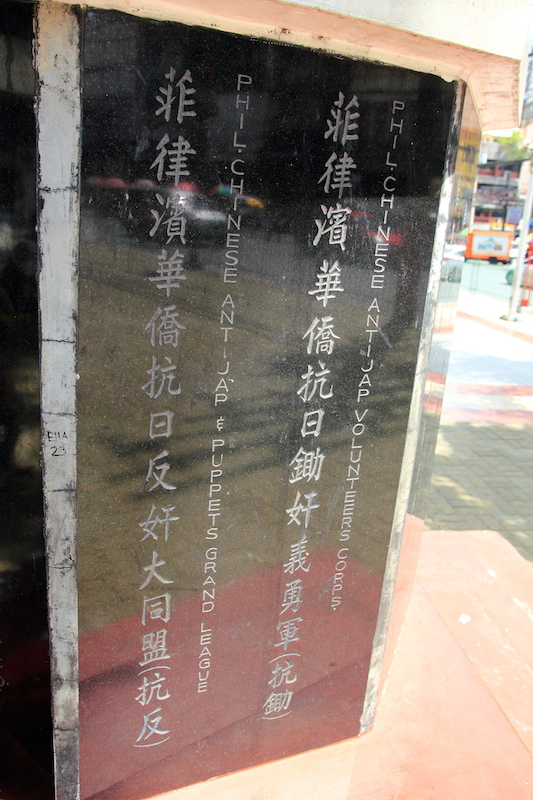 菲律濱華僑抗日鋤奸義勇軍(抗鋤)
PHIL. CHINESE ANTI JAP VOLUNTEERS CORPS.
菲律濱華僑抗日反奸大同盟(抗反)
PHIL. CHINESE ANTI-JAP & PUPPETS GRAND LEAGUE
EIIA
23